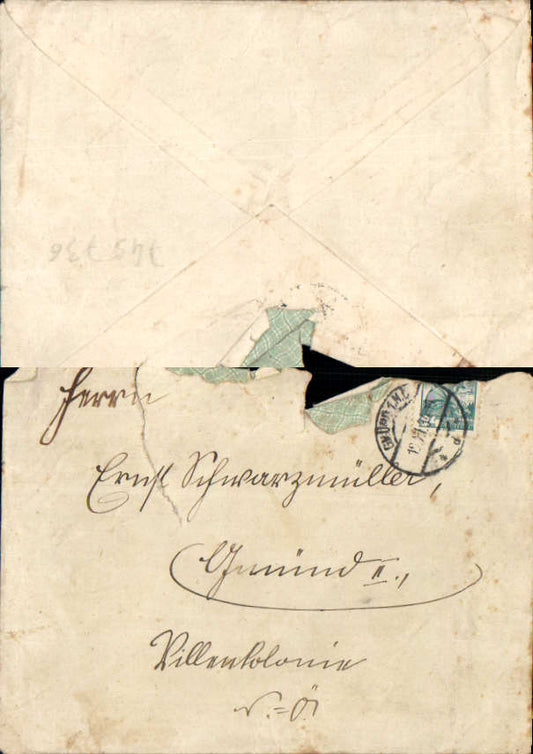 745 736
Herrn
Ernst Schwarzmüller,
Gmünd II.,
Villenkolonie
N.=Ö.